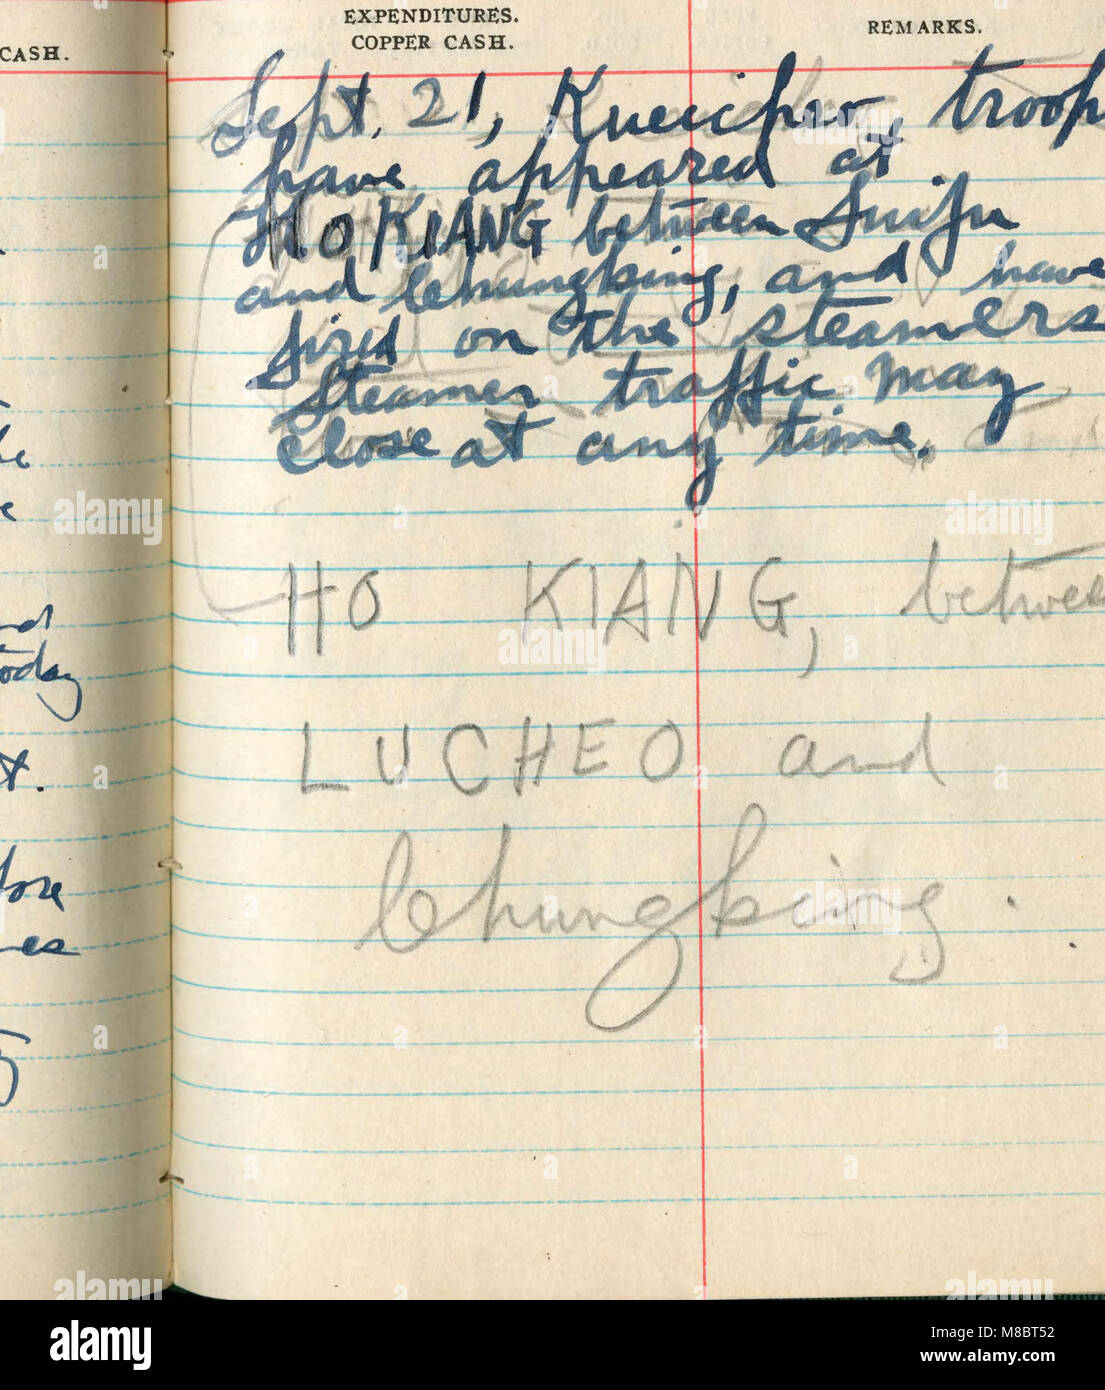 CASH.
EXPENDITURES.
COPPER CASH.
REMARKS.
Sept. 21, Kueichow troop
have appeared at
HO KIANG between Suifu
and Chungking, and have
fired on the steamers
Steamer traffic may
close at any time.
HO KIANG, betwee
LUCHEO and
Chungking.
today
t.
alamy
Image ID: M8BT52
www.alamy.com